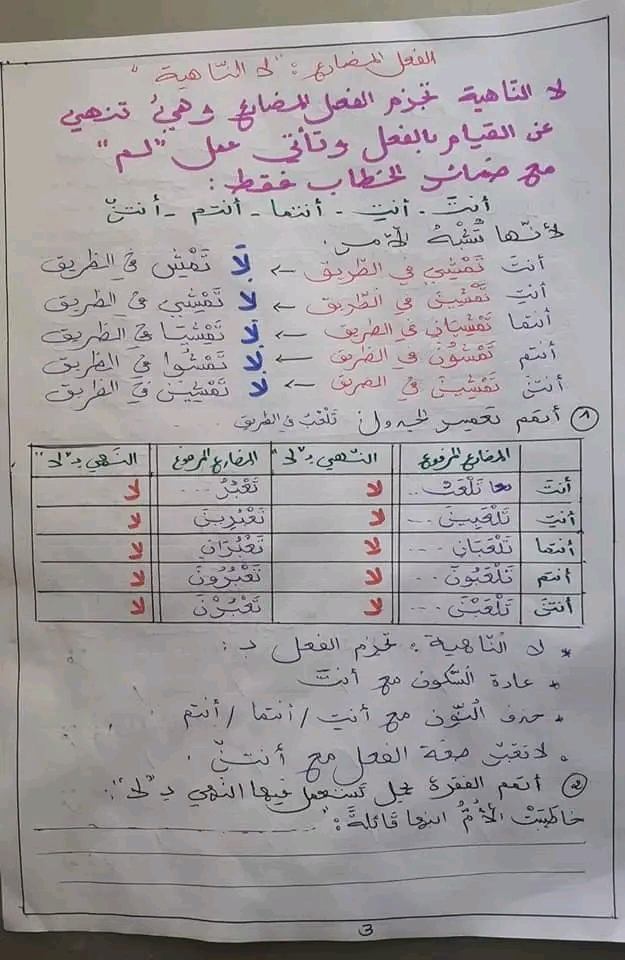 الفعل المضارع : "لا النّاهية"
لا النّاهية تجزم الفعل المضارع وهي تنهي
عن القيام بالفعل وتأتي مثل "لم"
مع ضمائر الخطاب فقط :
أنتَ - أنتِ - أنتما - أنتم - أنتنّ
لأنّها تُشْبهُ الأمر.
أنتَ تَمْشِي في الطّريق ← لا تَمْشِ في الطّريق
أنتِ تَمْشِينَ في الطّريق ← لا تَمْشِي في الطّريق
أنتما تَمْشِيَانِ في الطّريق ← لا تَمْشِيَا في الطّريق
أنتم تَمْشُونَ في الطّريق ← لا تَمْشُوا في الطّريق
أنتنّ تَمْشِينَ في الطريق ← لا تَمْشِينَ في الطّريق
① أتمّم تعمير الجدول تَلْعَبُ في الطّريق.
المضارع المرفوع النّهي بـ"لا" المضارع المرفوع النّهي بـ"لا"
أنتَ تَلْعَبُ... لا تَعْبُرُ... لا
أنتِ تَلْعَبِينَ... لا تَعْبُرِينَ لا
أنتما تَلْعَبَانِ.... لا تَعْبُرَانِ لا
أنتم تَلْعَبُونَ... لا تَعْبُرُونَ لا
أنتنّ تَلْعَبْنَ.... لا تَعْبُرْنَ لا
* لا النّاهية : تجزم الفعل بـ :
* عادة السّكون مع أنتَ
* حذف النّون مع أنتِ / أنتما / أنتم
* الفعل مع أنتنّ.
② أتمّم الفقرة بجمل تستعمل فيها النّهي بـ"لا" :
خاطَبَتْ الأُمُّ ابنها قائلةً : "
3